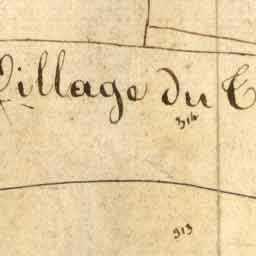 Village du
316
313